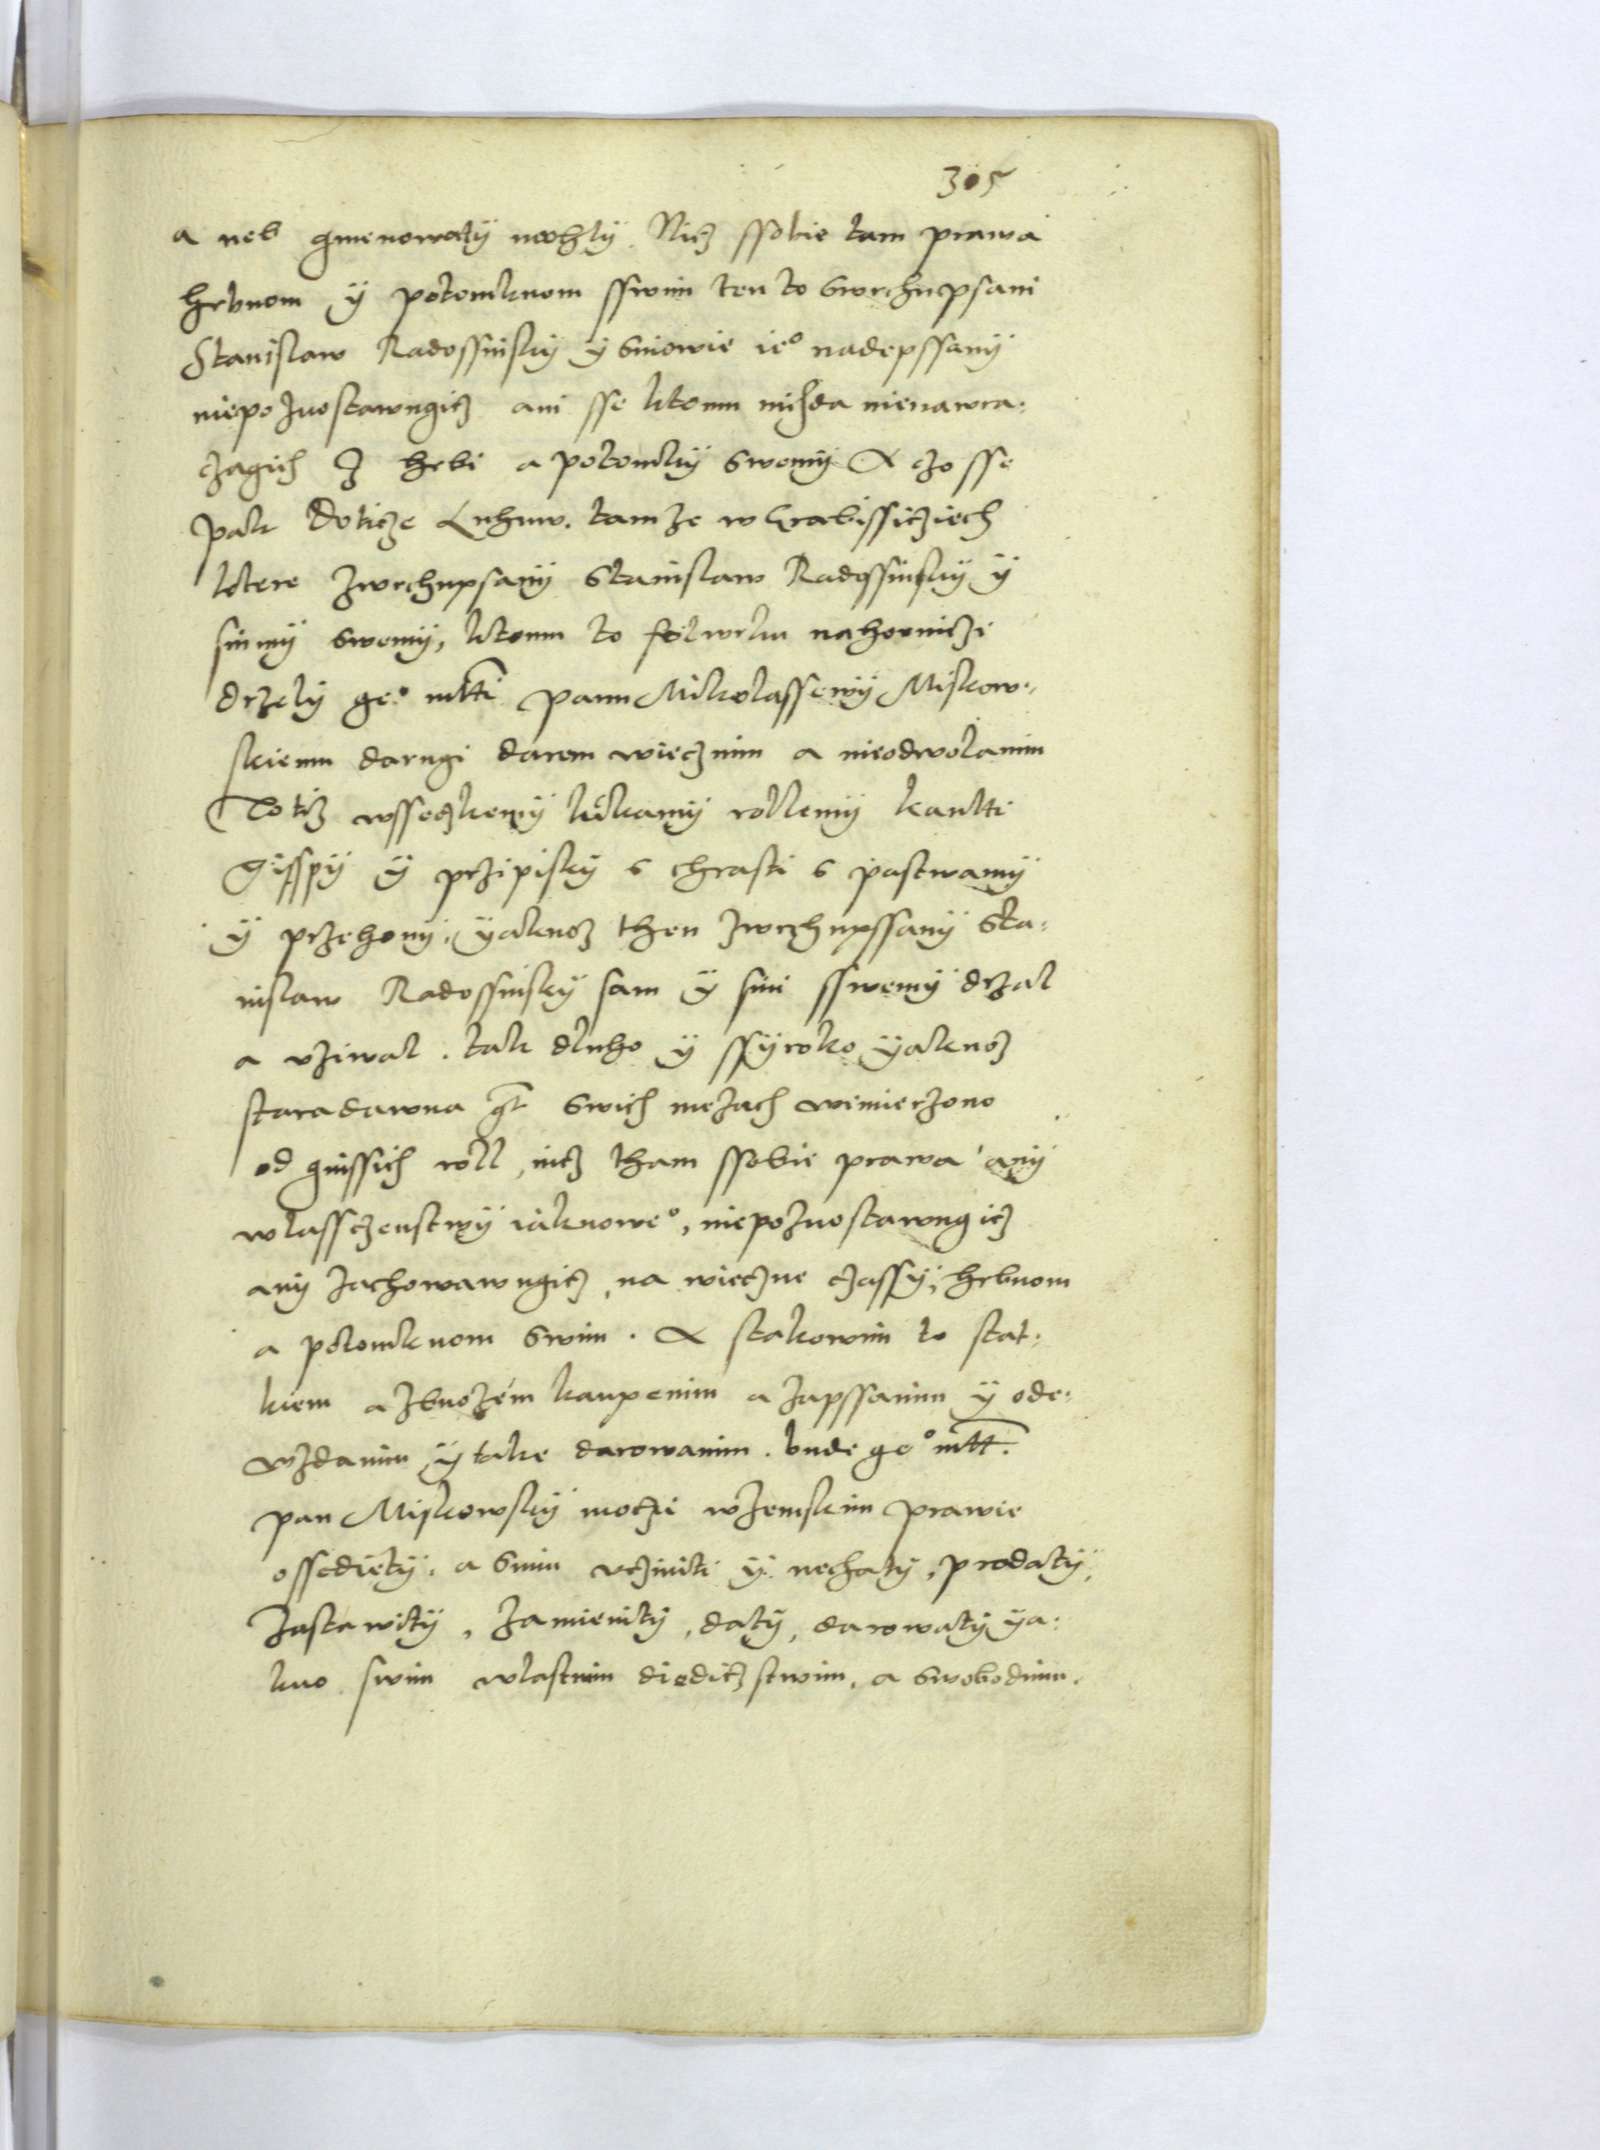 305
a neb gmenowaty mohly. Nicz ssobie tam prawa
hrbuom ÿ potomkuom sswim ten to swrchupsani
Stanislaw Radossinsky ÿ sniowie ie° nadepssany
niepozuostawugicz ani sse ktomu nihda nienawra-
czagich Z hrbi a potomky swemy A czo sse
pak doticze Luhuw. tamze w Grabissicziech
ktere zwrchupsany Stanislaw Radossinsky ÿ
sinmy swemy, ktomu to folwrku nahornicze
drzely ge° mtti panu Mikolassewy Miskow-
skiemu darugi darem wiecznim a nieodwolanim
Totiz wsseczkemy lukamy rollemy kautti
Gisspy ÿ przipisky s chrasti s pastwamy
ÿ przehony, yakuoz then zwrchupssany Sta-
nislaw Radossinsky sam ÿ sini sswemy drzal
a vziwal. tak dluho ÿ ssyroko yakuoz
staradawna gt swich mezach wimierzono
od ginssich roll, nicz tham ssobie prawa any
wlassczenstwy iakuowe°, niepozuostawugicz
any zachowawugicz, na wieczne czassy, hrbuom
a potomkuom swim. A stakowim to stat-
kiem a zbuozém kaupenim a zapssanim ÿ ode-
wzdanim ÿ take darowanim. bude ge° mtt.
pan Miskowsky moczi wzemskim prawie
ossediety, a snim vcziniti ÿ nechaty, prodaty,
Zastawity, zamienity, daty, darowaty ya-
kuo swim wlastnim diediczstwim, a swobodnim.